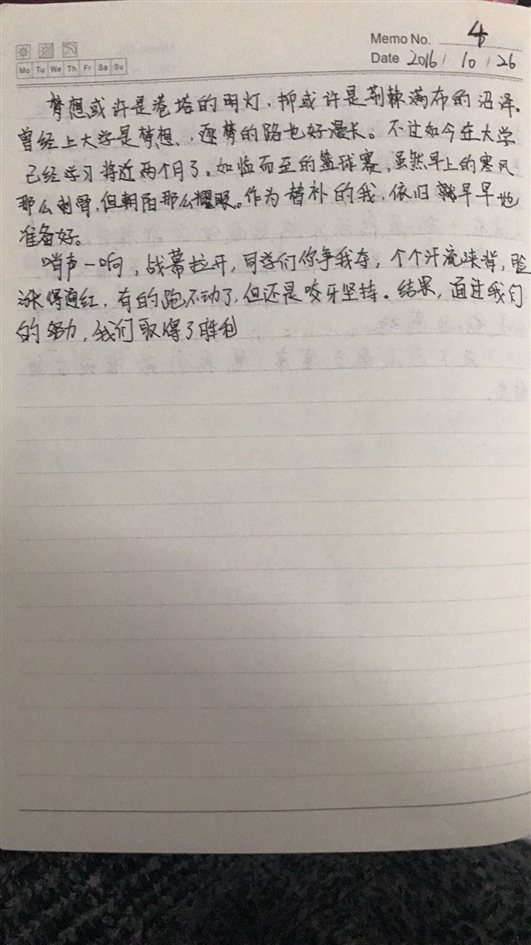 Memo No. 4
Mo Tu We Th Fr Sa Su
Date 2016 / 10 / 26
梦想或许是卷塔的明灯，抑或许是荆棘满布的沼泽，
曾经上大学是梦想，逐梦的路也好漫长。不过如今在大学
已经学习将近两个月了。如临而至的篮球赛，虽然早上的寒风
那么刺骨，但朝阳那么耀眼。作为替补的我，依旧早早地
准备好。
哨声一响，战幕拉开，同学们你争我夺，个个汗流浃背，脸
涨得通红，有的跑不动了，但还是咬牙坚持。结果，通过我们
的努力，我们取得了胜利